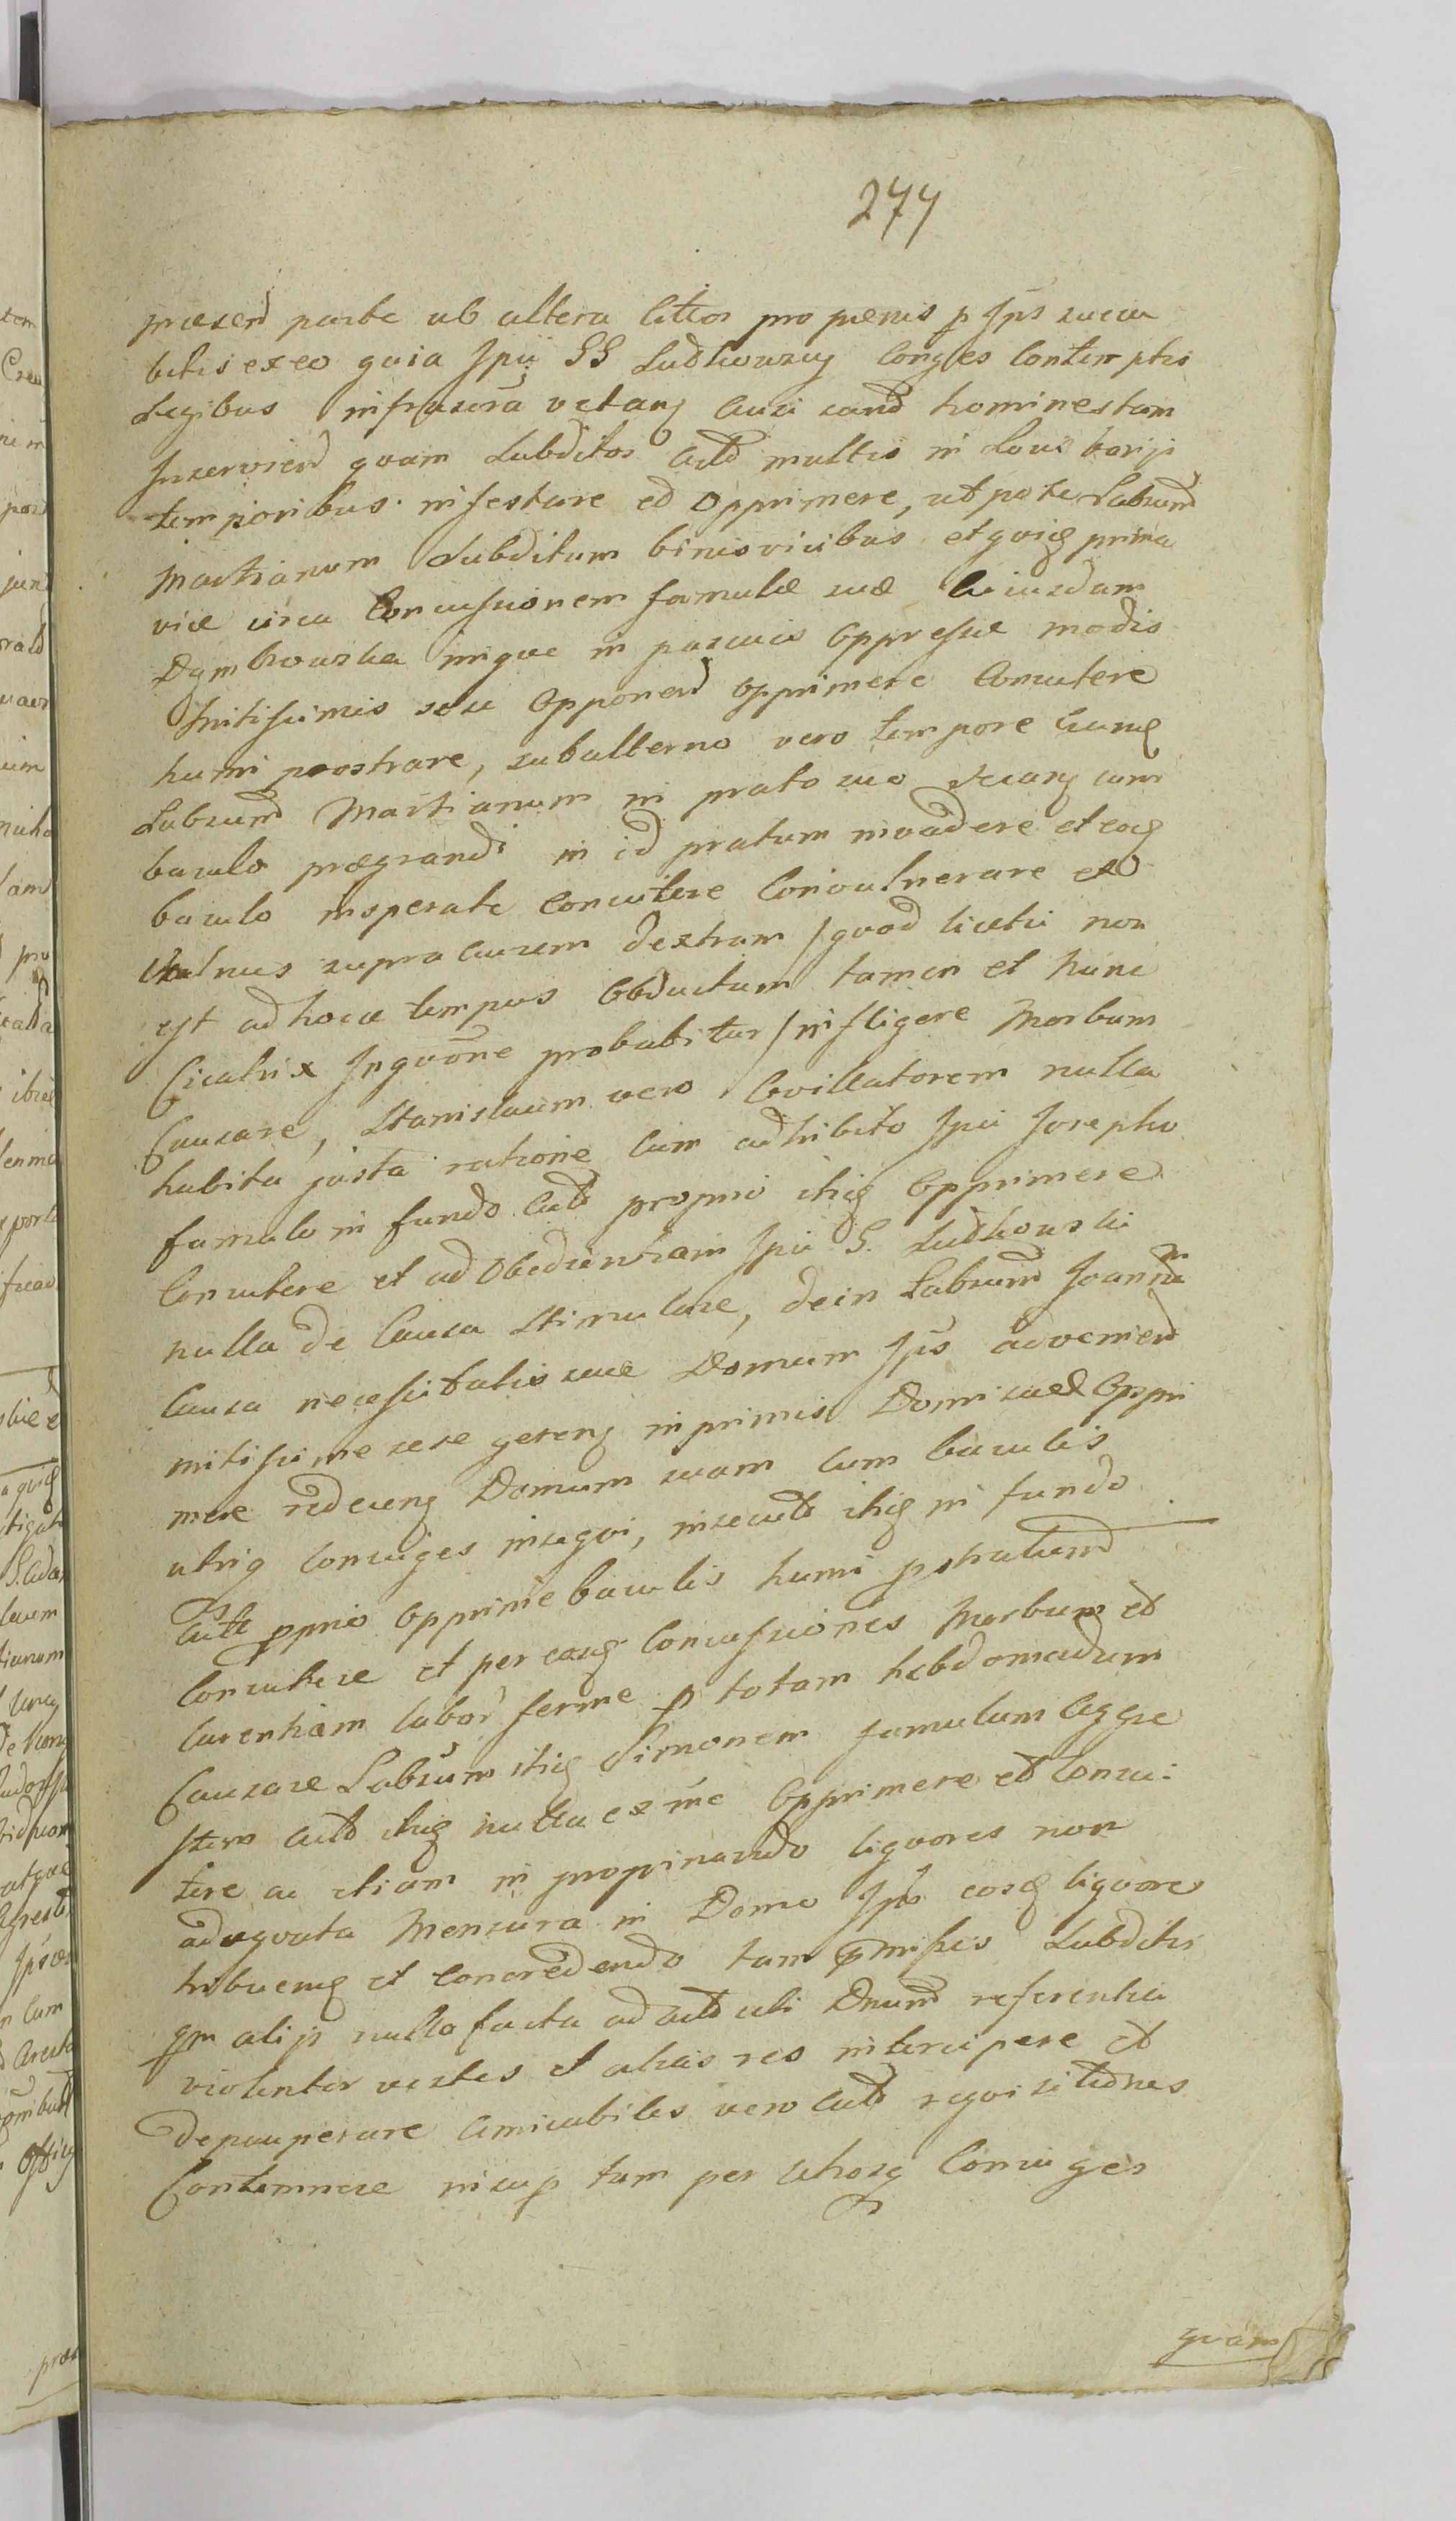 277
præsend parte ab altera Cittos pro pænis p Jps succu
bitis ex eo quia Jpsi SS Ludkowscy Conges Contemptis
Legibus infrascra vetang Ausi sunt homines tam
Inserviend quam Subditos Actd multis in Locis varijs
temporibus infestare ed Opprimere, utpote Labsum
Martianum Subditum binis vicibus et quidg prima
vice circa Concussionem famulæ suæ Cuiusdam
Dąmbrowska inque in pascuis Oppressæ modis
mitissimis sese Opponend Opprimere Concutere
humi prostrare, subalterno vero tempore Eumq
Labsum Martianum in prato suo secang cum
baculo prægrandi in id pratum invadere et eoq
baculo insperate concutere Convulnerare ed
Vulnus supra aurem dextram / quod licetu non
est ad hocce tempus Obductum tamen et hunc
Cicatrix Inquone probabitur / infligere Morbum
Causare, Stanislaum vero Covillatorem nulla
habita justa ratione Cum adhibito sui Josepho
famulo in fundo Actd proprio itig Opprimere
Concutere et ad Obedientiam Jpsi S. Ludkowski
nulla de Causa Stimulare, dein Labsum Joannem
Causa necessitatis suæ Domum Jps advenend
mitissime sese gereng inprimis Domi suæ Oppri
mere redeung Domum suam Cum baculis
utriq Coniuges insequi, insecutd itig in fundo
Actd pprio Opprime baculis humi pstratumd
Concutere et per easq Concussiones Morbum et
Carentiam labor ferme p totam hebdomadam
Causare Labsum itig Simonem famulum Aggre
stem Actd itig nulla ex me Opprimere ed Concu:
tere ac etiam in propinando liquores non
adæquata Mensura in Domo Jps eosq liquores
tribuenq et Concredendo tam pmissis Subditis
qm alijs nulla facta ad Actd uti Dnum referentia
violenter vestes et alias res intercipere et
depauperare Amicabiles vero Actd requisitiones
Contemnere insup tam per Utrosq Coniuges
quam